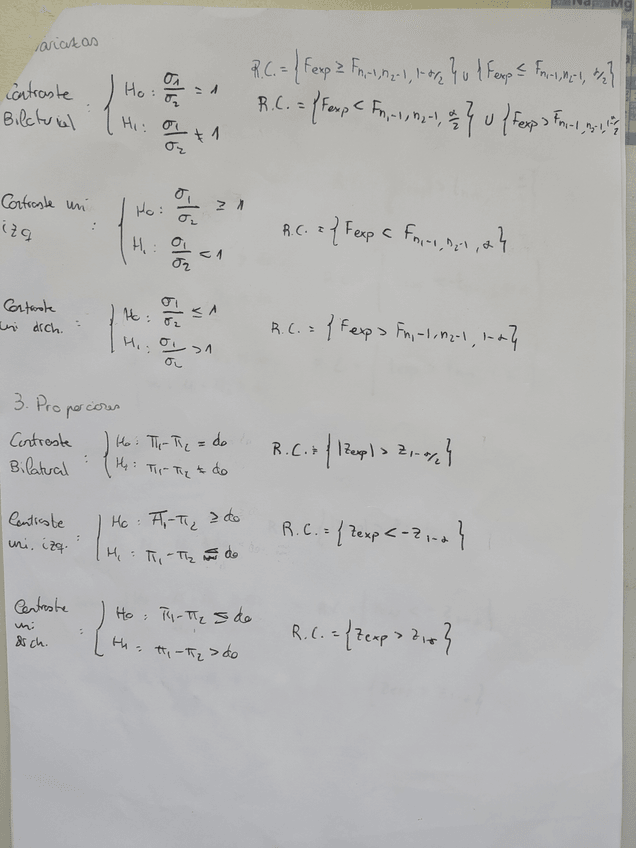 variazas
R.C. = { Fexp ≥ Fn₁-1, n₂-1, 1-α/2 } ∪ { Fexp ≤ Fn₁-1, n₂-1, α/2 }
Contraste Bilatural : { H₀ : σ₁/σ₂ = 1
H₁ : σ₁/σ₂ ≠ 1
R.C. = { Fexp < Fn₁-1, n₂-1, α/2 } ∪ { Fexp > Fn₁-1, n₂-1, 1-α/2
Contraste uni izq : { H₀ : σ₁/σ₂ ≥ 1
H₁ : σ₁/σ₂ < 1
R.C. = { Fexp < Fn₁-1, n₂-1, α }
Contraste uni dsch. : { H₀ : σ₁/σ₂ ≤ 1
H₁ : σ₁/σ₂ > 1
R.C. = { Fexp > Fn₁-1, n₂-1, 1-α }
3. Proporciones
Contraste Bilatural : { H₀ : π₁-π₂ = d₀
H₁ : π₁-π₂ ≠ d₀
R.C. = { |Zexp| > Z1-α/2 }
Contraste uni. izq. : { H₀ : π₁-π₂ ≥ d₀
H₁ : π₁-π₂ ≤ d₀
R.C. = { Zexp < -Z1-α }
Contraste uni dsch. : { H₀ : π₁-π₂ ≤ d₀
H₁ = π₁-π₂ > d₀
R.C. = { Zexp > Z1-α }
Na
Mg